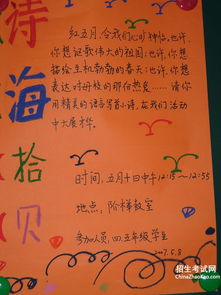 诗
海
拾
贝
红五月,令我们心旷神怡。也许,
你想讴歌伟大的祖国;也许,你想
描绘生机勃勃的春天;也许,你想
表达对母校的那份热爱……请你
用精美的语言写首小诗,在我们活动
中大展才华。
时间:五月十日中午12:15～12:55
地点:阶梯教室
参加人员:四、五年级学生
2007.5.8
招生考试网
ChinaZhaoKao.com